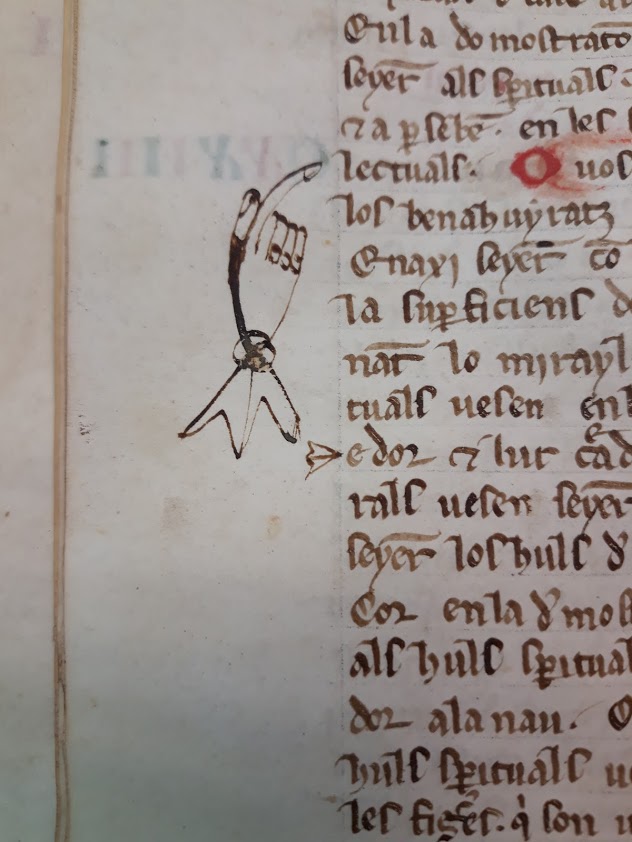 En la domostrato
seyer als spirituals
⁊ a p sebe. en les
lectuals. O uos
los benahuyratz
E naxi seyer co
la superficiens d
nat lo mirayl
tuals uesen enl
edor ⁊ lur cad
rals uesen seyer
seyer los huls d
Cor en la d mos
als huls spiritual
dor a la nau. O
huls spirituals u
les figes. q son u